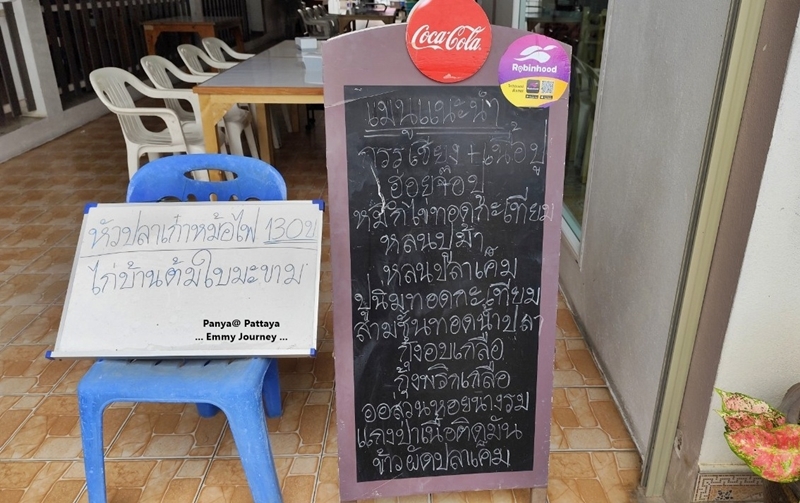 Coca-Cola
Robinhood
เมนูแนะนำ
กรรเชียง+เนื้อปู
ฮ่อยจ๊อปู
หมึกไข่ทอดกะเทียม
หลนปูม้า
หลนปลาเค็ม
ปูนิ่มทอดกะเทียม
สามชั้นทอดน้ำปลา
กุ้งอบเกลือ
กุ้งพริกเกลือ
ออส่วนหอยนางรม
แกงป่าเนื้อติดมัน
ข้าวผัดปลาเค็ม
หัวปลาเก๋าหม้อไฟ 130บ
ไก่บ้านต้มใบมะขาม
Panya@ Pattaya
... Emmy Journey ...